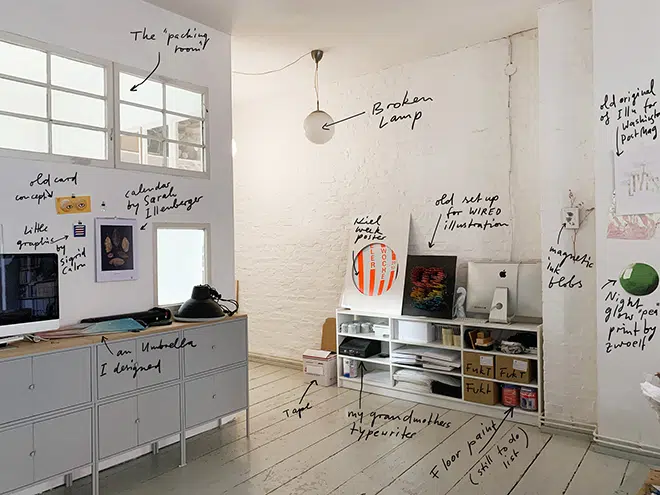 The "packing
room"
Broken
Lamp
old original
of Illu for
Washington
Post Mag
old card
concept
calendar
by Sarah
Illenberger
Little
graphic
by
Sigrid
Calon
Kiel
week
poster
old set up
for WIRED
illustration
KIELER
WOCHE
magnetic
ink
blobs
Night
glow "pea"
print by
zwoelf
an Umbrella
I designed
FUKT
FUKT
FUKT
FUKT
Tape
my grandmothers
typewriter
Floor paint
(still to do
list)